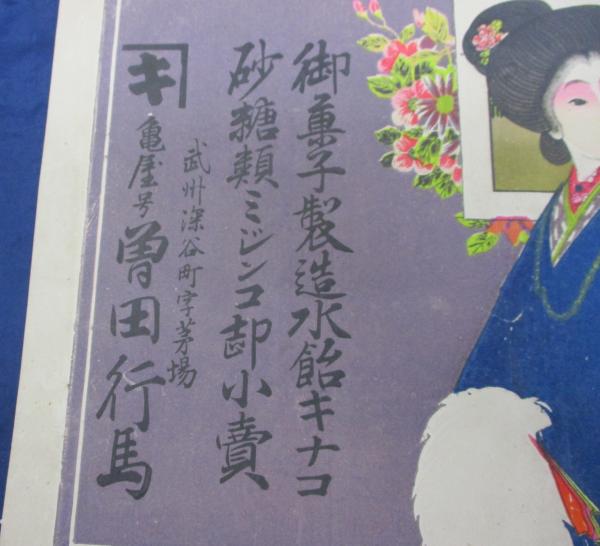 御菓子製造水飴キナコ
砂糖類ミジンコ卸小賣
武州深谷町字茅場
キ
亀屋号曽田行馬